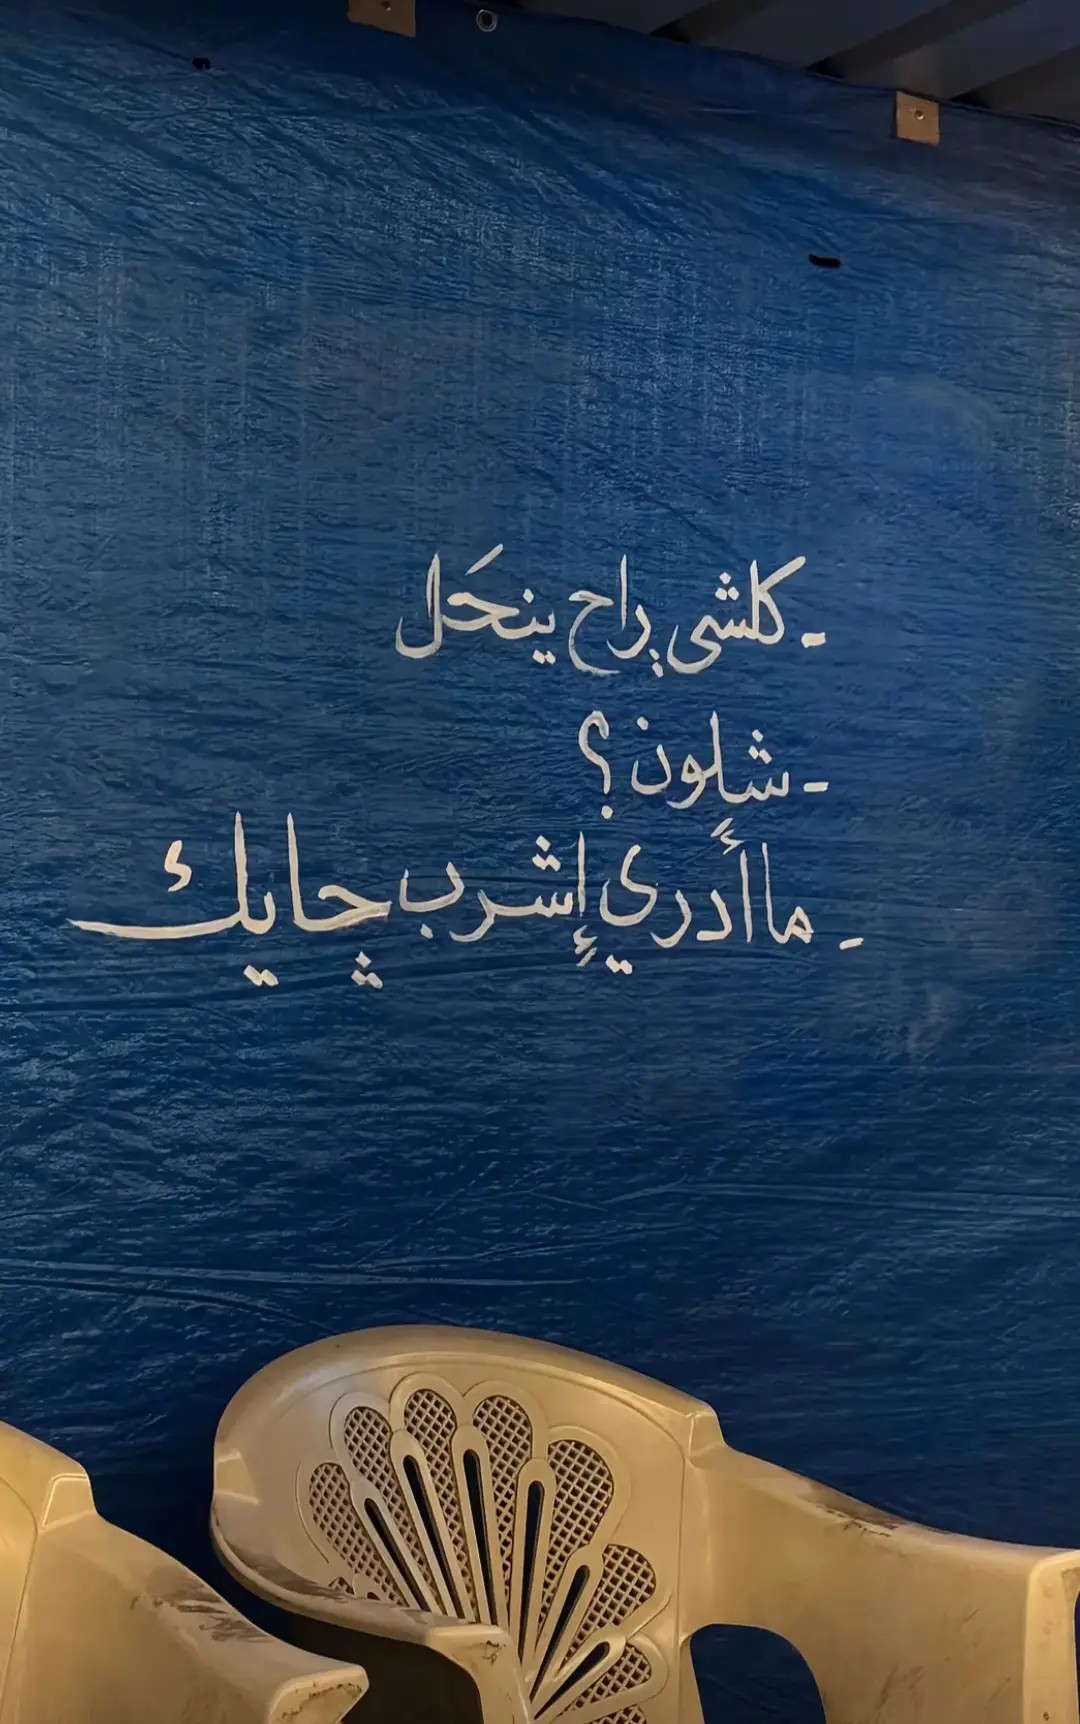 - كلشي راح ينحَل
- شلِون؟
- ما أَدري إِشرب چايك